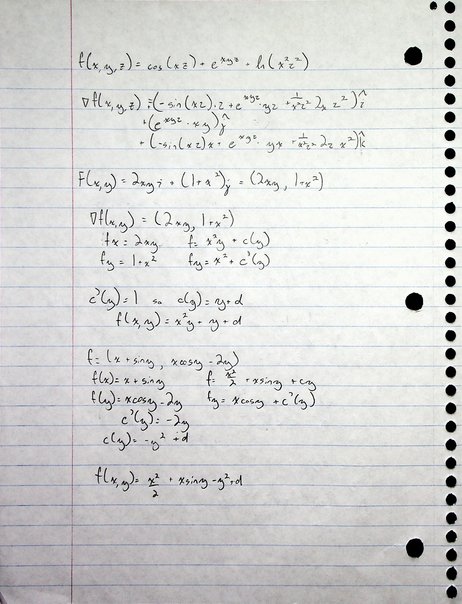 f(x,y,z) = cos(xz) + e^{xyz} + ln(x²z²)
∇f(x,y,z) = (-sin(xz)·z + e^{xyz}·yz + 1/(x²z²) 2x z²)î
+ (e^{xyz}·xy)ĵ
+ (-sin(xz)x + e^{xyz}·yx + 1/(x²z²) 2z x²)k̂
F(x,y) = 2xyi + (1+x²)j = (2xy, 1+x²)
∇f(x,y) = (2xy, 1+x²)
fx = 2xy f = x²y + c(y)
fy = 1+x² fy = x² + c'(y)
c'(y) = 1 so c(y) = y+d
f(x,y) = x²y + y + d
f = (x + siny, xcosy - 2y)
f(x) = x + siny f = x²/2 + xsiny + cy
f(y) = xcosy - 2y fy = xcosy + c'(y)
c'(y) = -2y
c(y) = -y² + d
f(x,y) = x²/2 + xsiny - y² + d